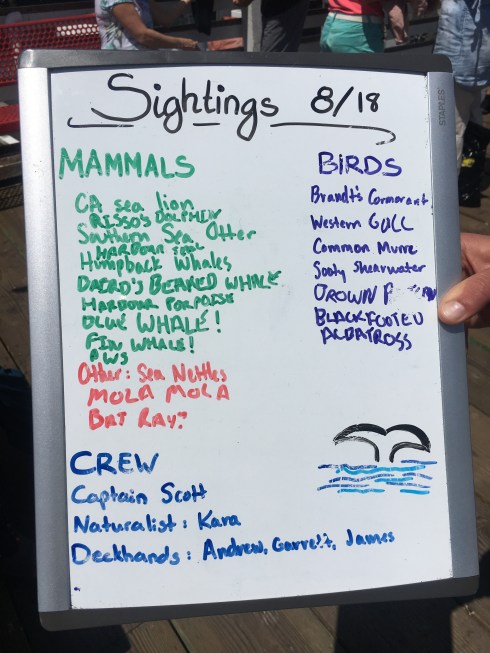 Sightings 8/18
STAPLES
MAMMALS
CA sea lion
RISSO'S DOLPHIN
Southern Sea Otter
HARBOUR SEAL
Humpback Whales
BEAKED WHALE
HARBOUR PORPOISE
BLUE WHALE!
FIN WHALE!
PWS
Other: Sea Nettles
MOLA MOLA
BAT RAY?
BIRDS
Brandt's Cormorant
Western GULL
Common Murre
Sooty Shearwater
BROWN
BLACKFOOTED
ALBATROSS
CREW
Captain Scott
Naturalist: Kara
Deckhands: Andrew, Garrett, James